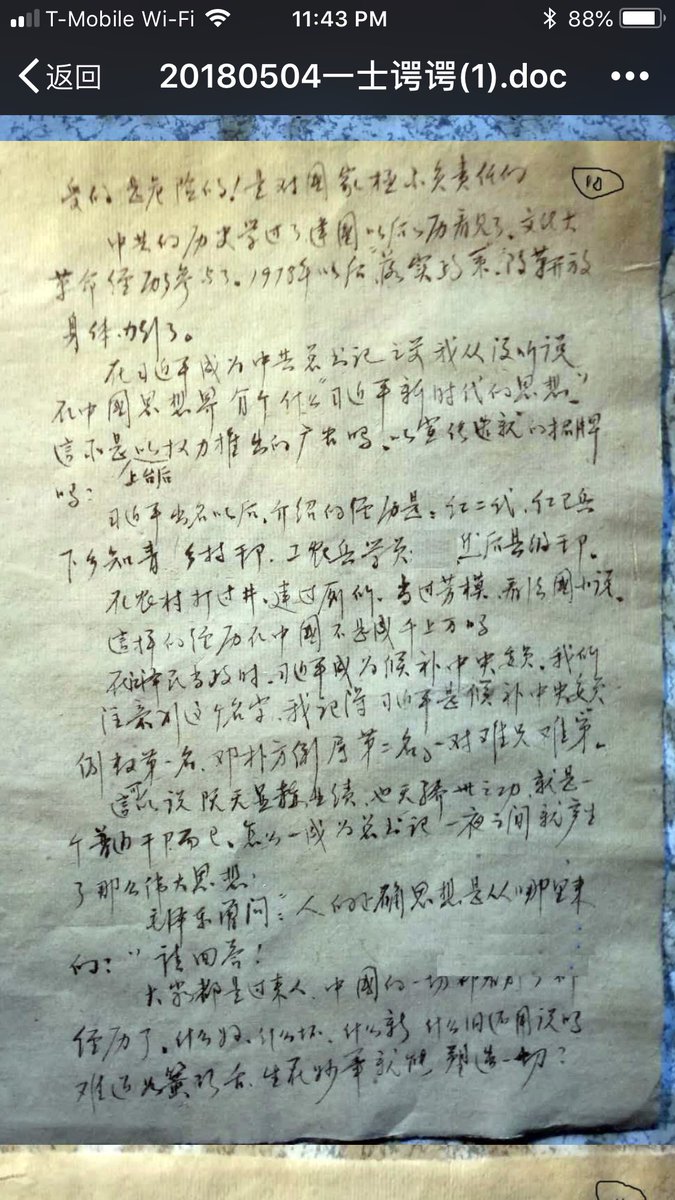 T-Mobile Wi-Fi 11:43 PM 88%
返回 20180504一士谔谔(1).doc
受的是危险的！是对國家極不负责任的
10
中共的历史学过了建國以后的历看見了、文化大
革命经历参与了。1978年以后"落实政策、改革开放
身体力行了。
在习近平成为中共总书记之前我从没听说
在中國思想界有个什么"习近平新时代的思想"
這不是以权力推出的广告吗、以宣传造就"的招牌
吗？
上台后
习近平出名以后，介绍的经历是：红二代、红卫兵
下乡知青 乡村干卩、工农兵学员 然后县级干卩。
在农村打过井、建过厕所、当过劳模、看法國小说。
這样的经历在中國不是成千上万吗
在江泽民当政时、习近平成为候补中央委员、我们
注意到这个名字、我记得习近平是候补中央委员
倒数第一名、邓朴方倒序第二名、一对难兄难弟。
這可以说 既无显赫业绩、也无骄世之功、就是一
个普通干卩而已。怎么一成为总书记 一夜之间就产生
了那么伟大思想？
毛泽东曾问："人的正确思想是从哪里来
的？" 请回答！
大家都是过来人、中國的一切
经历了。什么好、什么坏、什么新 什么旧还用说吗
难道如簧巧舌、生花妙筆就能 塑造一切？